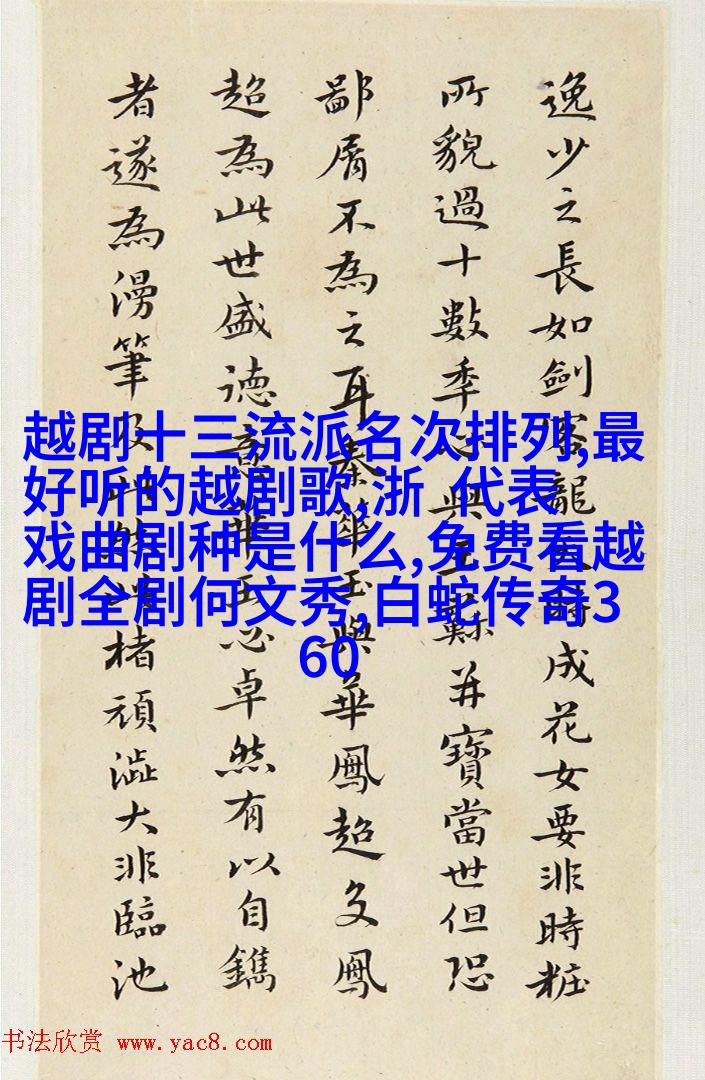 越剧十三流派名次排列,最
好听的越剧歌,浙 代表
戏曲剧种是什么,免费看越
剧全剧何文秀,白蛇传奇3
60
逸少之長如劍客龍時成花女要非時粧
所貌過十數秊與王蘇并寶當世但恐
鄙屑不為之耳秦華玉與華鳳超文鳳
超為此世盛德意華玉必卓然有以自鐫
者遂為漫筆及此楮頑澁大非臨池
书法欣赏 www.yac8.com